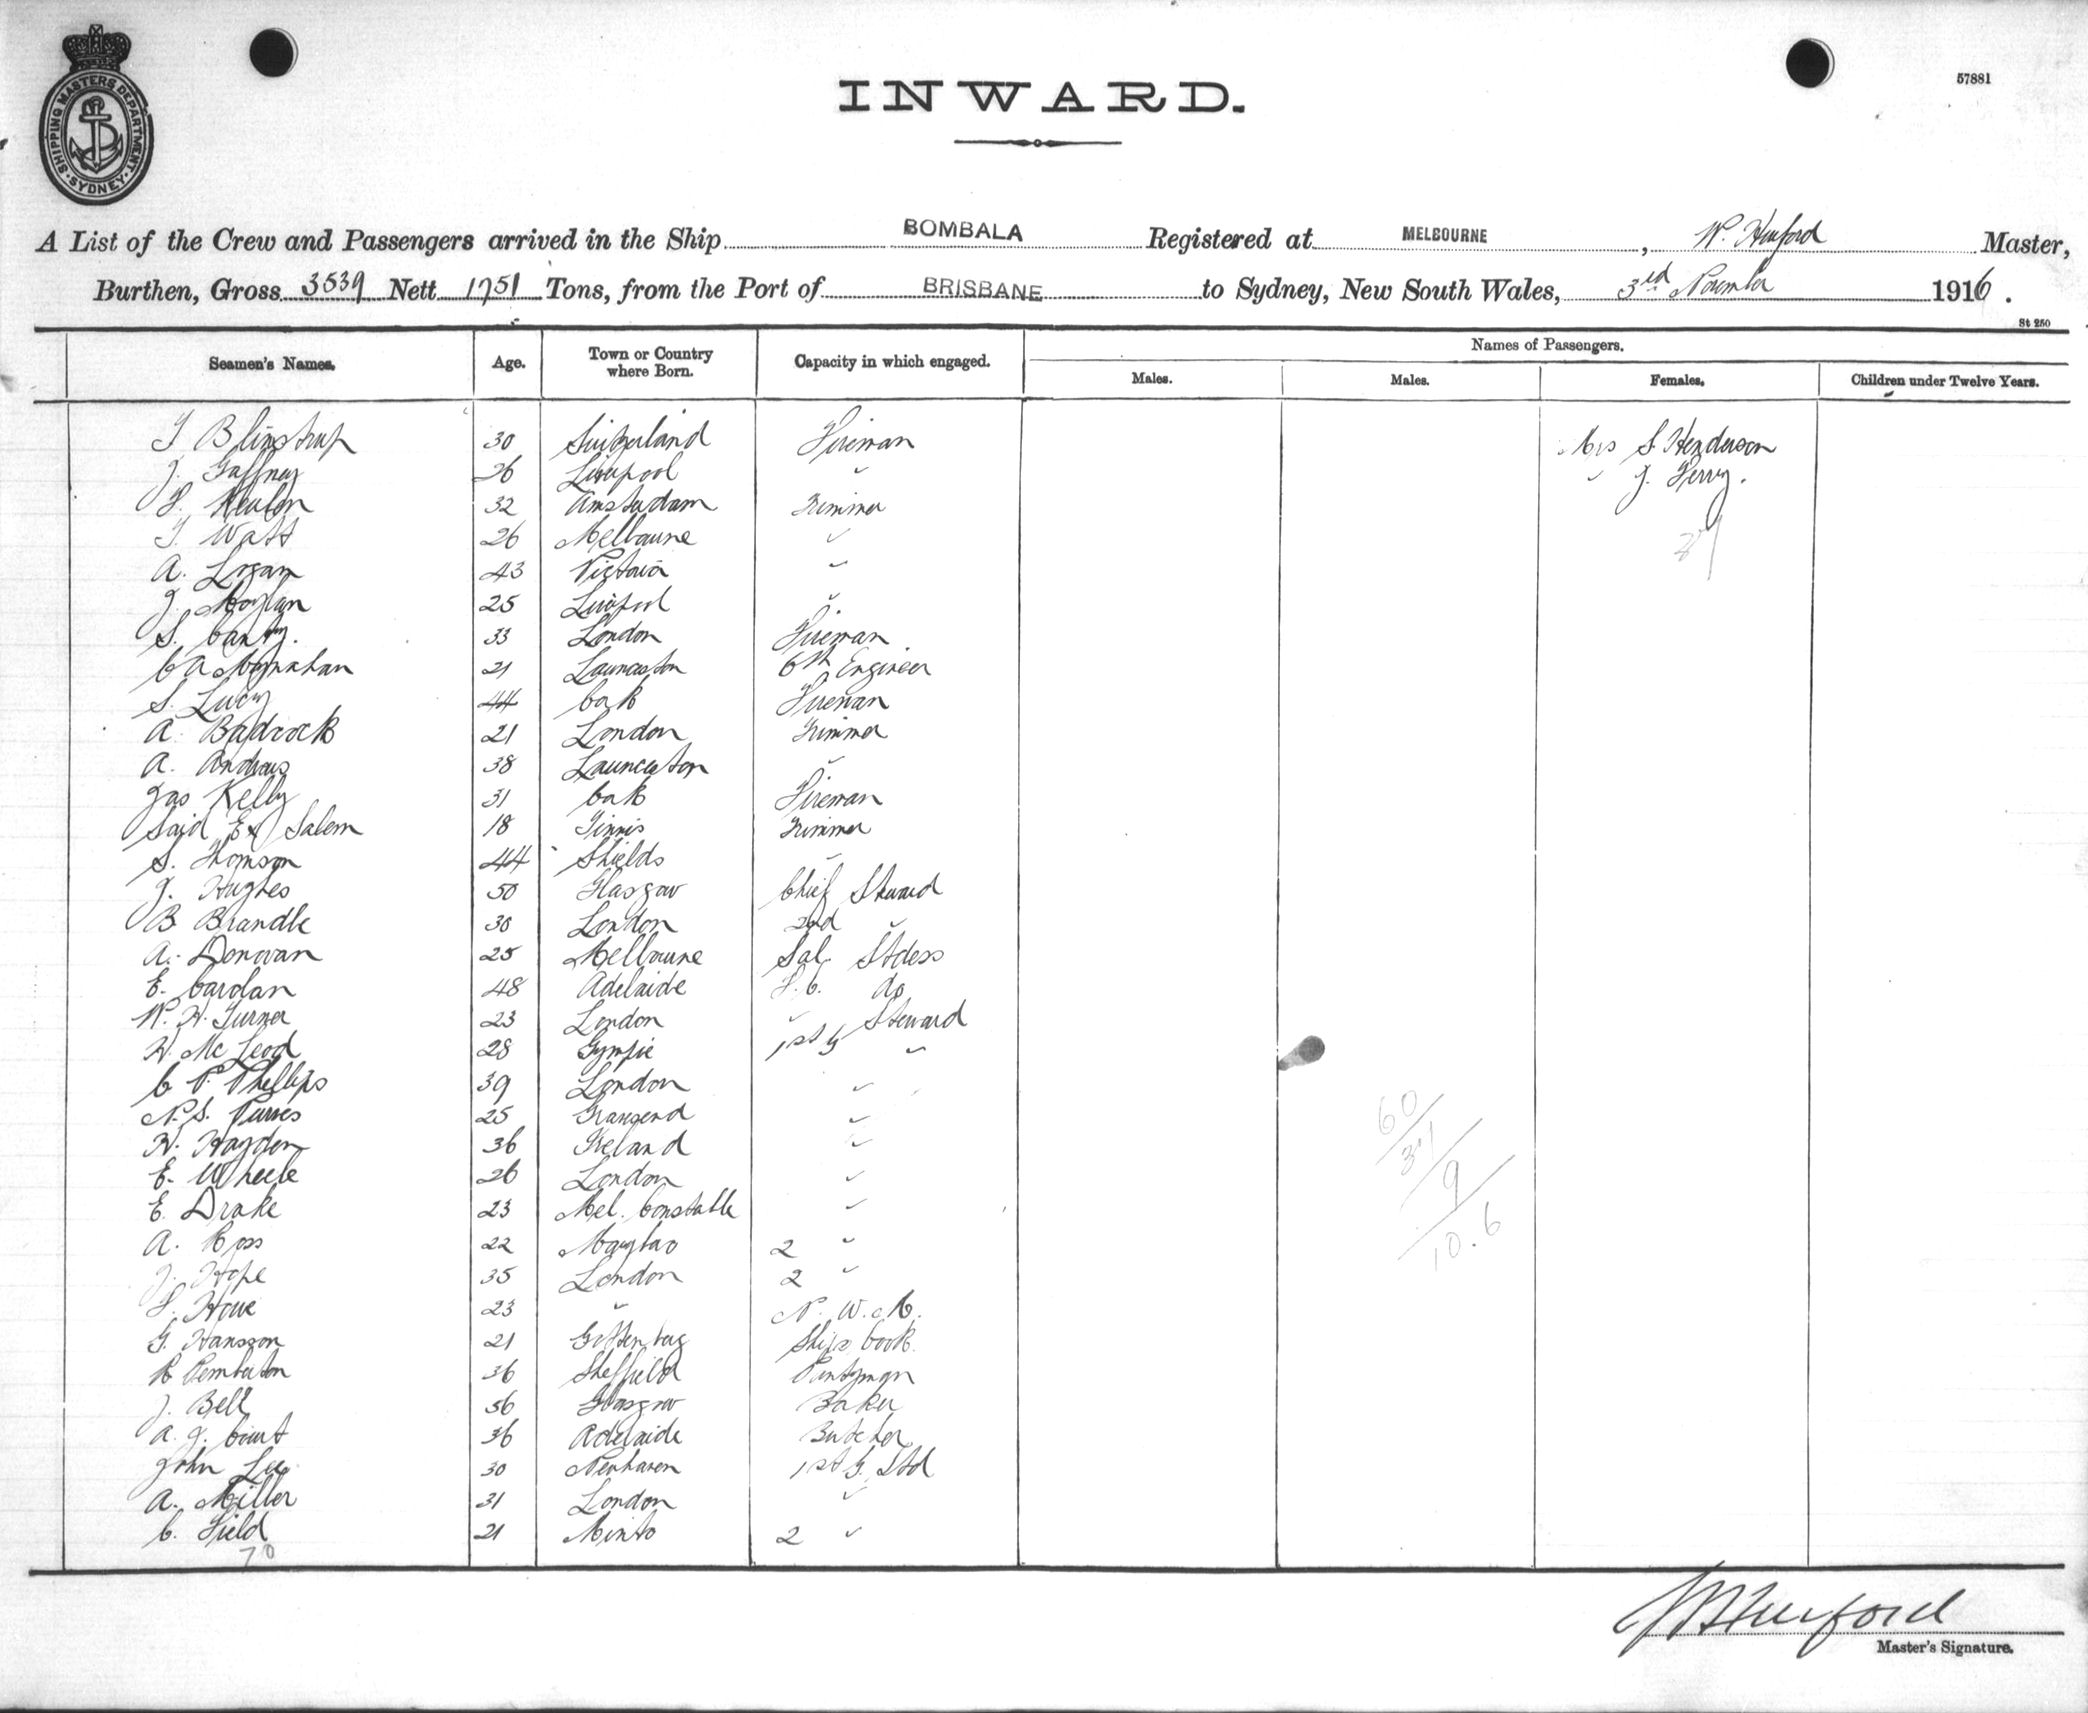 SHIPPING MASTERS DEPARTMENT. SYDNEY.
57881
INWARD.
A List of the Crew and Passengers arrived in the Ship BOMBALA Registered at MELBOURNE, W. Hurford Master,
Burthen, Gross 3539 Nett 1751 Tons, from the Port of BRISBANE to Sydney, New South Wales, 3rd November 1916.
St 250
Seamen's Names. Age. Town or Country where Born. Capacity in which engaged. Names of Passengers.
Males. Males. Females. Children under Twelve Years.
T Blinstrup 30 Switzerland Fireman Mrs S. Henderson
J. Gaffney 26 Liverpool " " J. Ferry.
32 Amsterdam Trimmer
T. Watt 26 Melbourne "
A. Logan 43 Victoria "
J. Moylan 25 Liverpool "
S. Canty. 33 London Fireman
C A Moynahan 21 Launceston 6th Engineer
S. Lucy 44 Cork Fireman
A. Badrock 21 London Trimmer
A. Andrews 38 Launceston "
Jas Kelly 31 Cork Fireman
Said Salem 18 Trimmer
S. Thomson 44 Shields "
J. Hughes 50 Glasgow Chief Steward
B Brandle 30 London 2nd "
A. Donovan 25 Melbourne Sal. Stdess
E. Cardan 48 Adelaide F.C. do
W. H. Turner 23 London " Steward
H. McLeod 28 Gympie 1st G "
C P. Phillips 39 London "
N. S. Purves 25 Gravesend "
H. Hayden 36 Ireland "
E. Wheele 26 London "
E. Drake 23 Mel. Constable "
A. Ross 22 2 "
J. Hope 35 London 2 "
F. Howe 23 " N. W. M.
G. Hansson 21 Gottenberg Ships Cook.
R Pemberton 36 Sheffield Pantryman
J. Bell 56 Glasgow Baker
A. J. 36 Adelaide Butcher
John Lee 30 Newhaven 1st G. Std
A. Miller 31 London "
C. Field 21 Minto 2 "
70
60/
9/
10.6
W Hurford
Master's Signature.